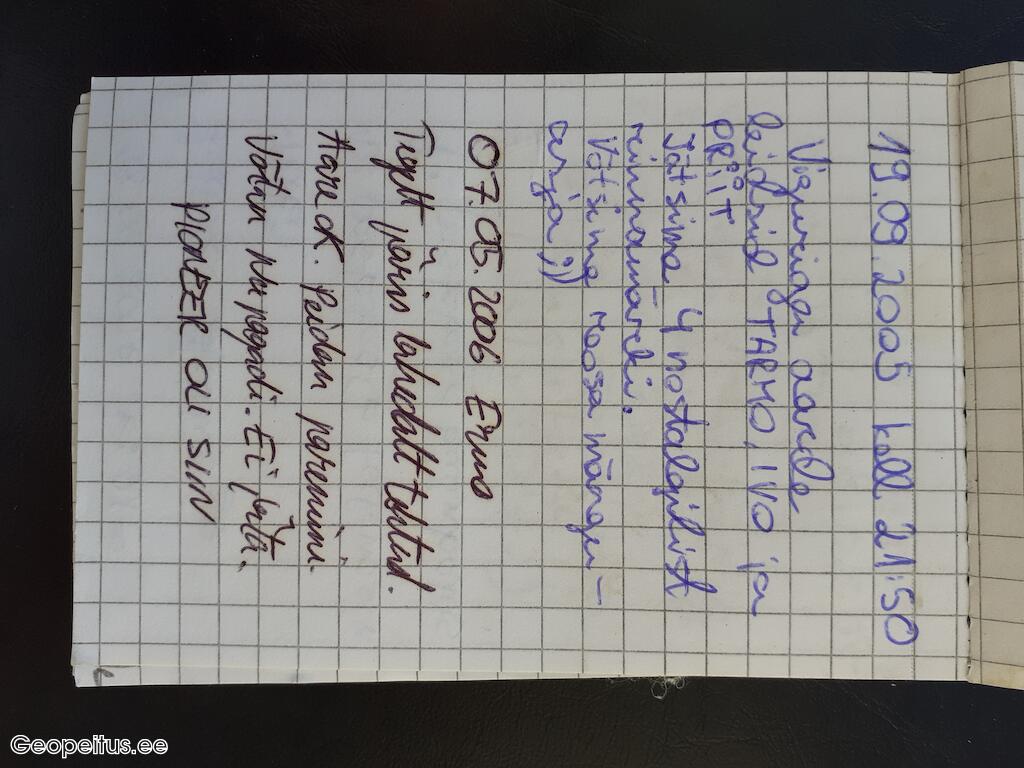 19.09.2005 kell 21:50
Vigurciaga aarde
leidsid TARMO, IVO ja
PRIIT
Jätsime 4 nostalgilist
rinnamärki.
Võtsime roosa mängu-
asja ;))
07.05.2006 Erno
Tigelt päris lahedalt tehtud.
Aare ok. Peidan paremini.
Võtan nipagadi. Ei jäta.
PIONEER OLI SIIN
Geopeitus.ee